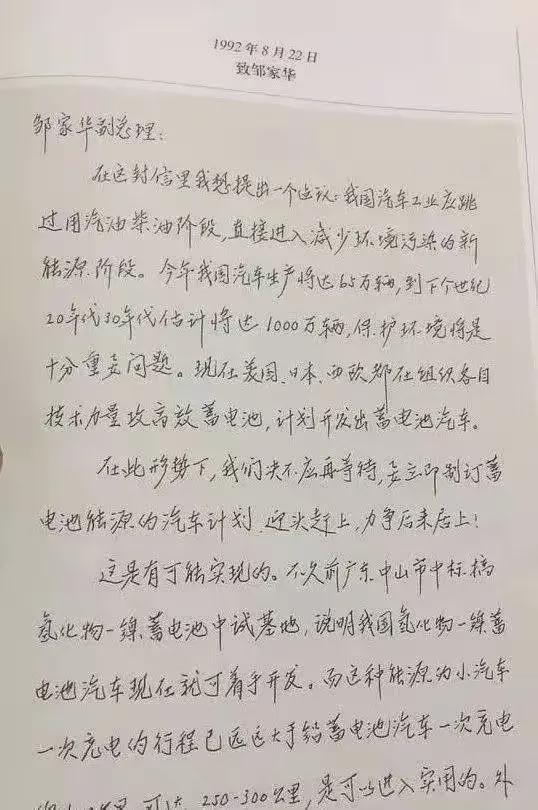 1992年8月22日
致邹家华
邹家华副总理:
在这封信里我想提出一个建议:我国汽车工业应跳
过用汽油柴油阶段,直接进入减少环境污染的新
能源阶段。今年我国汽车生产将达65万辆,到下个世纪
20年代30年代估计将达1000万辆,保护环境将是
十分重要问题。现在美国、日本、西欧都在组织各自
技术力量攻高效蓄电池,计划开发出蓄电池汽车。
在此形势下,我们决不应再等待,要立即制订蓄
电池能源的汽车计划,迎头赶上,力争后来居上!
这是有可能实现的。不久前广东中山市中标搞
氢化物—镍蓄电池中试基地,说明我国氢化物—镍蓄
电池汽车现在就可着手开发。而这种能源的小汽车
一次充电的行程已远远大于铅蓄电池汽车一次充电
公里,可达 250-300公里,是可以进入实用的。外